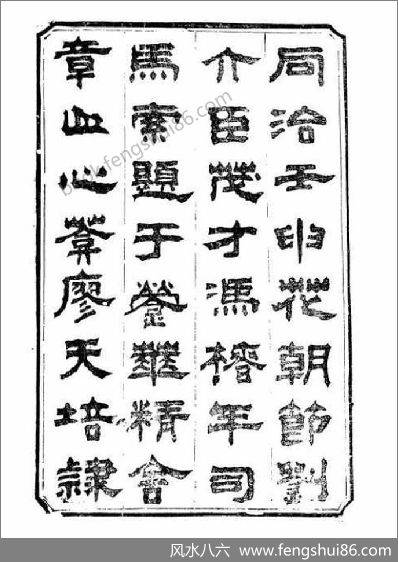 同治壬申花朝節劉
介臣茂才馮年司
馬索題于華精舍
章山心葊廖天培隸
book.fengshui86.com
风水八六 www.fengshui86.com